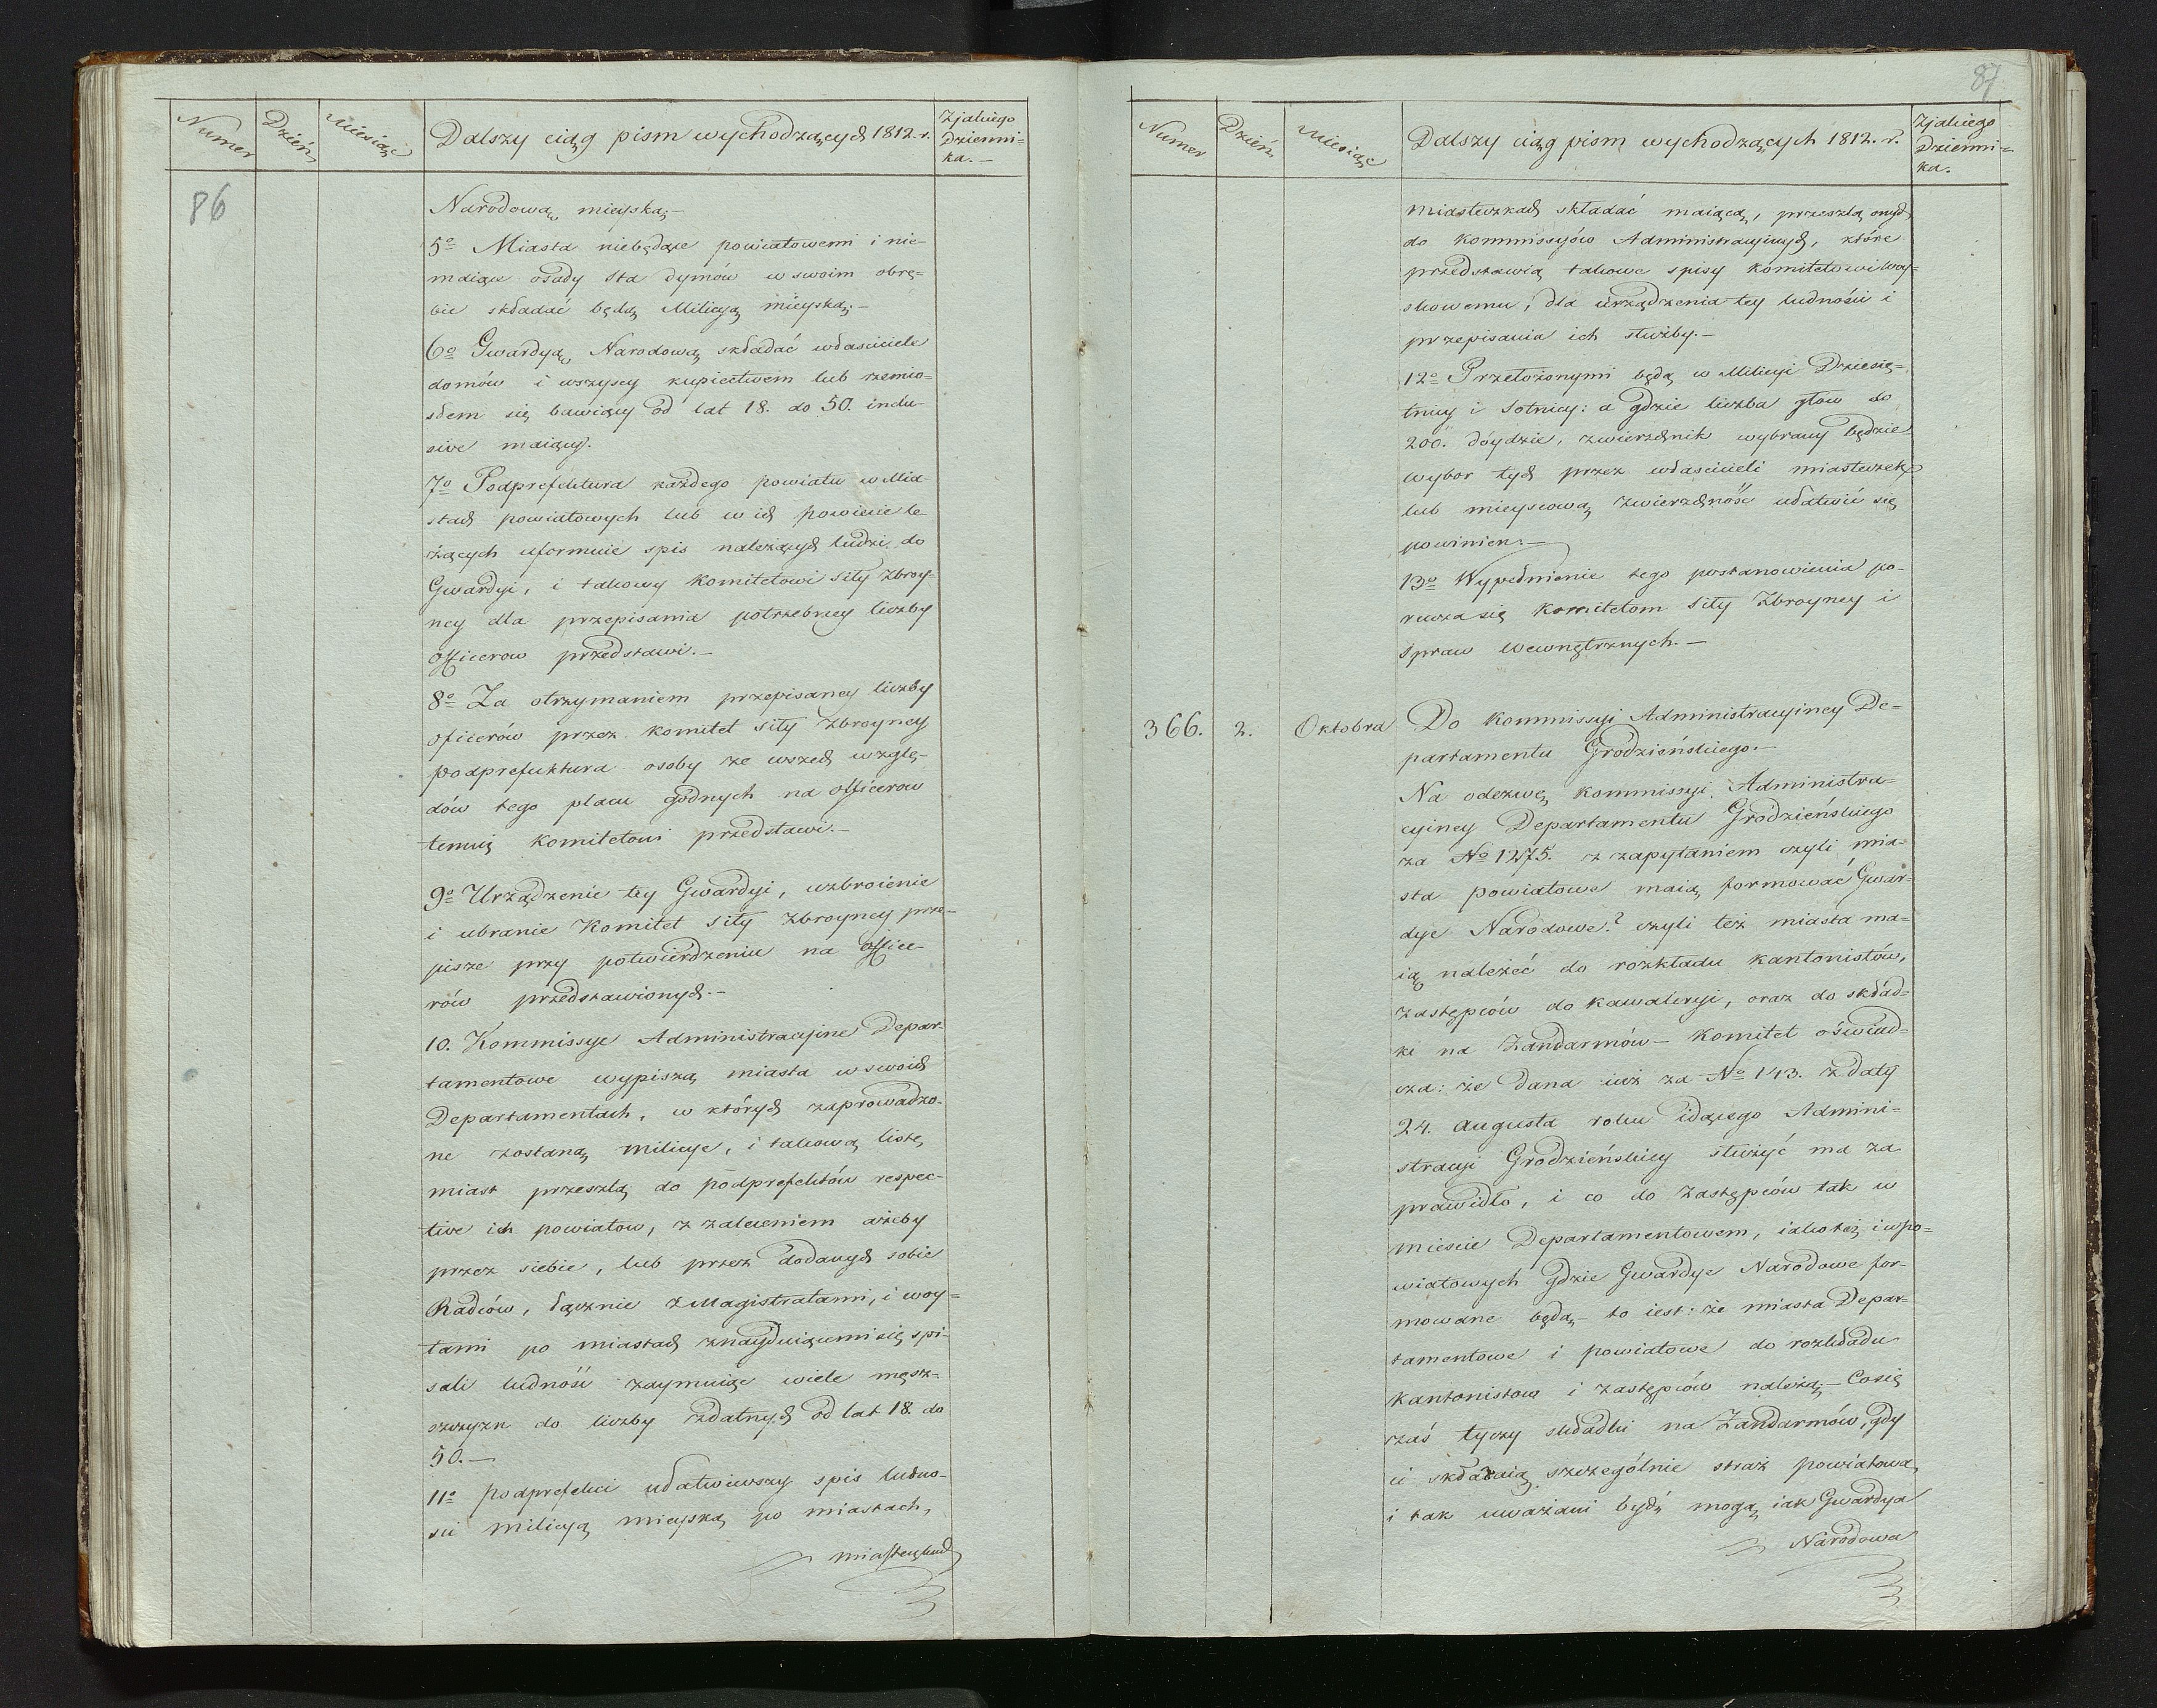 Numer
Dzień
Miesiąc
Dalszy ciąg pism wychodzących 1812. r.
Z jakiego
Dzienni=
ka.—
86
Narodową mieyską;—
5º Miasta niebędące powiatowemi i nie-
maiące osady sta dymów w swoim obrę=
bie składać będą Milicyą mieyską;—
6º Gwardyą Narodową składać właściciele
domów i wszyscy kupiectwem lub rzemio=
słem się bawiący od lat 18. do 50. inclu-
sive maiący.
7º Podprefektura każdego powiatu w Mia-
stach powiatowych lub w ich powiecie le
żących uformuie spis należących ludzi do
Gwardyi, i takowy Komitetowi Siły Zbroy=
ney dla przepisania potrzebney liczby
officerow przedstawi.—
8º Za otrzymaniem przepisaney liczby
oficerów przez Komitet Siły Zbroyney
podprefektura osoby ze wszech wzglę-
dów tego placu godnych na officerow
temuż Komitetowi przedstawi.—
9º Urządzenie tey Gwardyi, uzbroienie
i ubranie Komitet Siły Zbroyney prze-
pisze przy potwierdzeniu na office-
rów przedstawionych.—
10. Kommissye Administracyine Depar-
tamentowe wypiszą miasta w swoich
Departamentach, w których zaprowadzo-
ne zostaną milicye, i takową listę
miast przeszlą do podprefektów respec-
tive ich powiatow, z zaleceniem ażeby
przez siebie, lub przez dodanych sobie
Radców, łącznie z Magistratami, i woy=
tami po miastach znayduiącemi się spi-
sali ludność zaymuiąc wiele męsz-
szczyzn do liczby zdatnych od lat 18. do
50.—
11º podprefekci ułatwiwszy spis ludno-
ści milicyą mieyską po miastach,
miasteczkach
87
Numer
Dzień
Miesiąc
Dalszy ciąg pism wychodzących 1812. r.
Z jakiego
Dzienni=
ka.
miasteczkach składać maiącą, przeszlą onych
do Kommissyów Administracyinych, które
przedstawią takowe spisy Komitetowi Woy=
skowemu, dla urządzenia tey ludności i
przepisania ich służby.—
12º Przełożonymi będą w Milicyi Dziesię=
tnicy i Sotnicy: a gdzie liczba głow do
200. dóydzie, zwierzchnik wybrany będzie
wybor tych przez właścicieli miasteczek
lub mieyscową zwierzchność ułatwić się
powinien.—
13º Wypełnienie tego postanowienia po-
rucza się Komitetom Siły Zbroyney i
Spraw Wewnętrznych.—
366.
2.
Oktobra
Do Kommissyi Administracyiney De=
partamentu Grodzieńskiego.—
Na odezwę Kommissyi Administra=
cyiney Departamentu Grodzieńskiego
za Nº 1275. z zapytaniem czyli mia-
sta powiatowe maią formować Gwar=
dye Narodowe? czyli też miasta ma=
ią należeć do rozkładu kantonistów,
zastępców do kawaleryi, oraz do skład=
ki na Żandarmów— Komitet oświad=
cza: że dana iuż za Nº 143. z daty
24. Augusta roku idącego Admini=
stracyi Grodzieńskiey służyć ma za
prawidło, i co do zastępców tak w
mieście Departamentowem, iako też i w po=
wiatowych gdzie Gwardye Narodowe for-
mowane będą,— to iest: że miasta Depar=
tamentowe i powiatowe do rozkładu
kantonistow i zastępców należą;— Co się
zaś tyczy składki na Żandarmów, gdy
ci składaią szczególnie straż powiatową
i tak uważani bydź mogą iak Gwardya
Narodowa